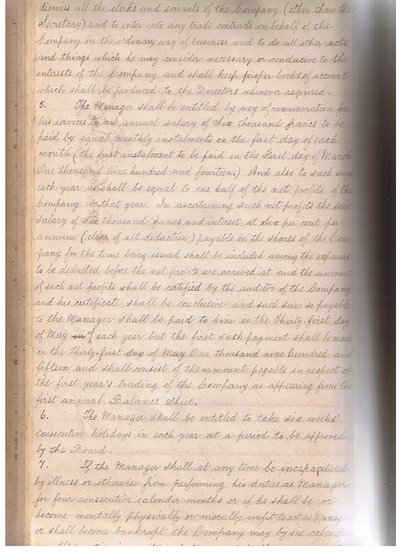 dismiss all the clerks and servants of the Company (other than the
Secretary) and to enter into any trade contracts on behalf of the
Company in the ordinary way of business and to do all other acts
and things which he may consider necessary or conducive to the
interests of the Company and shall keep proper books of account
which shall be produced to the Directors whenever required.
5. The Manager shall be entitled by way of remuneration for
his services to an annual salary of Six thousand francs to be
paid by equal monthly instalments on the first day of each
month (the first instalment to be paid on the First day of March
One thousand nine hundred and fourteen.) And also to such sum
each year as shall be equal to one half of the net profits of the
Company in that year. In ascertaining such net profits the said
salary of six thousand francs and interest at Six per cent per
annum (clear of all deduction) payable on the shares of the Com
pany for the time being issued shall be included among the expenses
to be deducted before the net profits are arrived at and the amount
of such net profits shall be certified by the auditor of the Company
and his certificate shall be conclusive and such sum so payable
to the Manager shall be paid to him on the Thirty-first day
of May in each year but the first such payment shall be made
on the Thirty-first day of May One thousand nine hundred and
fifteen and shall consist of the amount payable in respect of
the first year's trading of the Company as appearing from the
first annual Balance Sheet.
6. The Manager shall be entitled to take six weeks'
consecutive holidays in each year at a period to be approved
by the Board.
7. If the Manager shall at any time be incapacitated
by illness or otherwise from performing his duties as Manager
for four consecutive calender months or if he shall be or
become mentally physically or morally unfit to act as Manager
or shall become bankrupt the Company may by one calendar